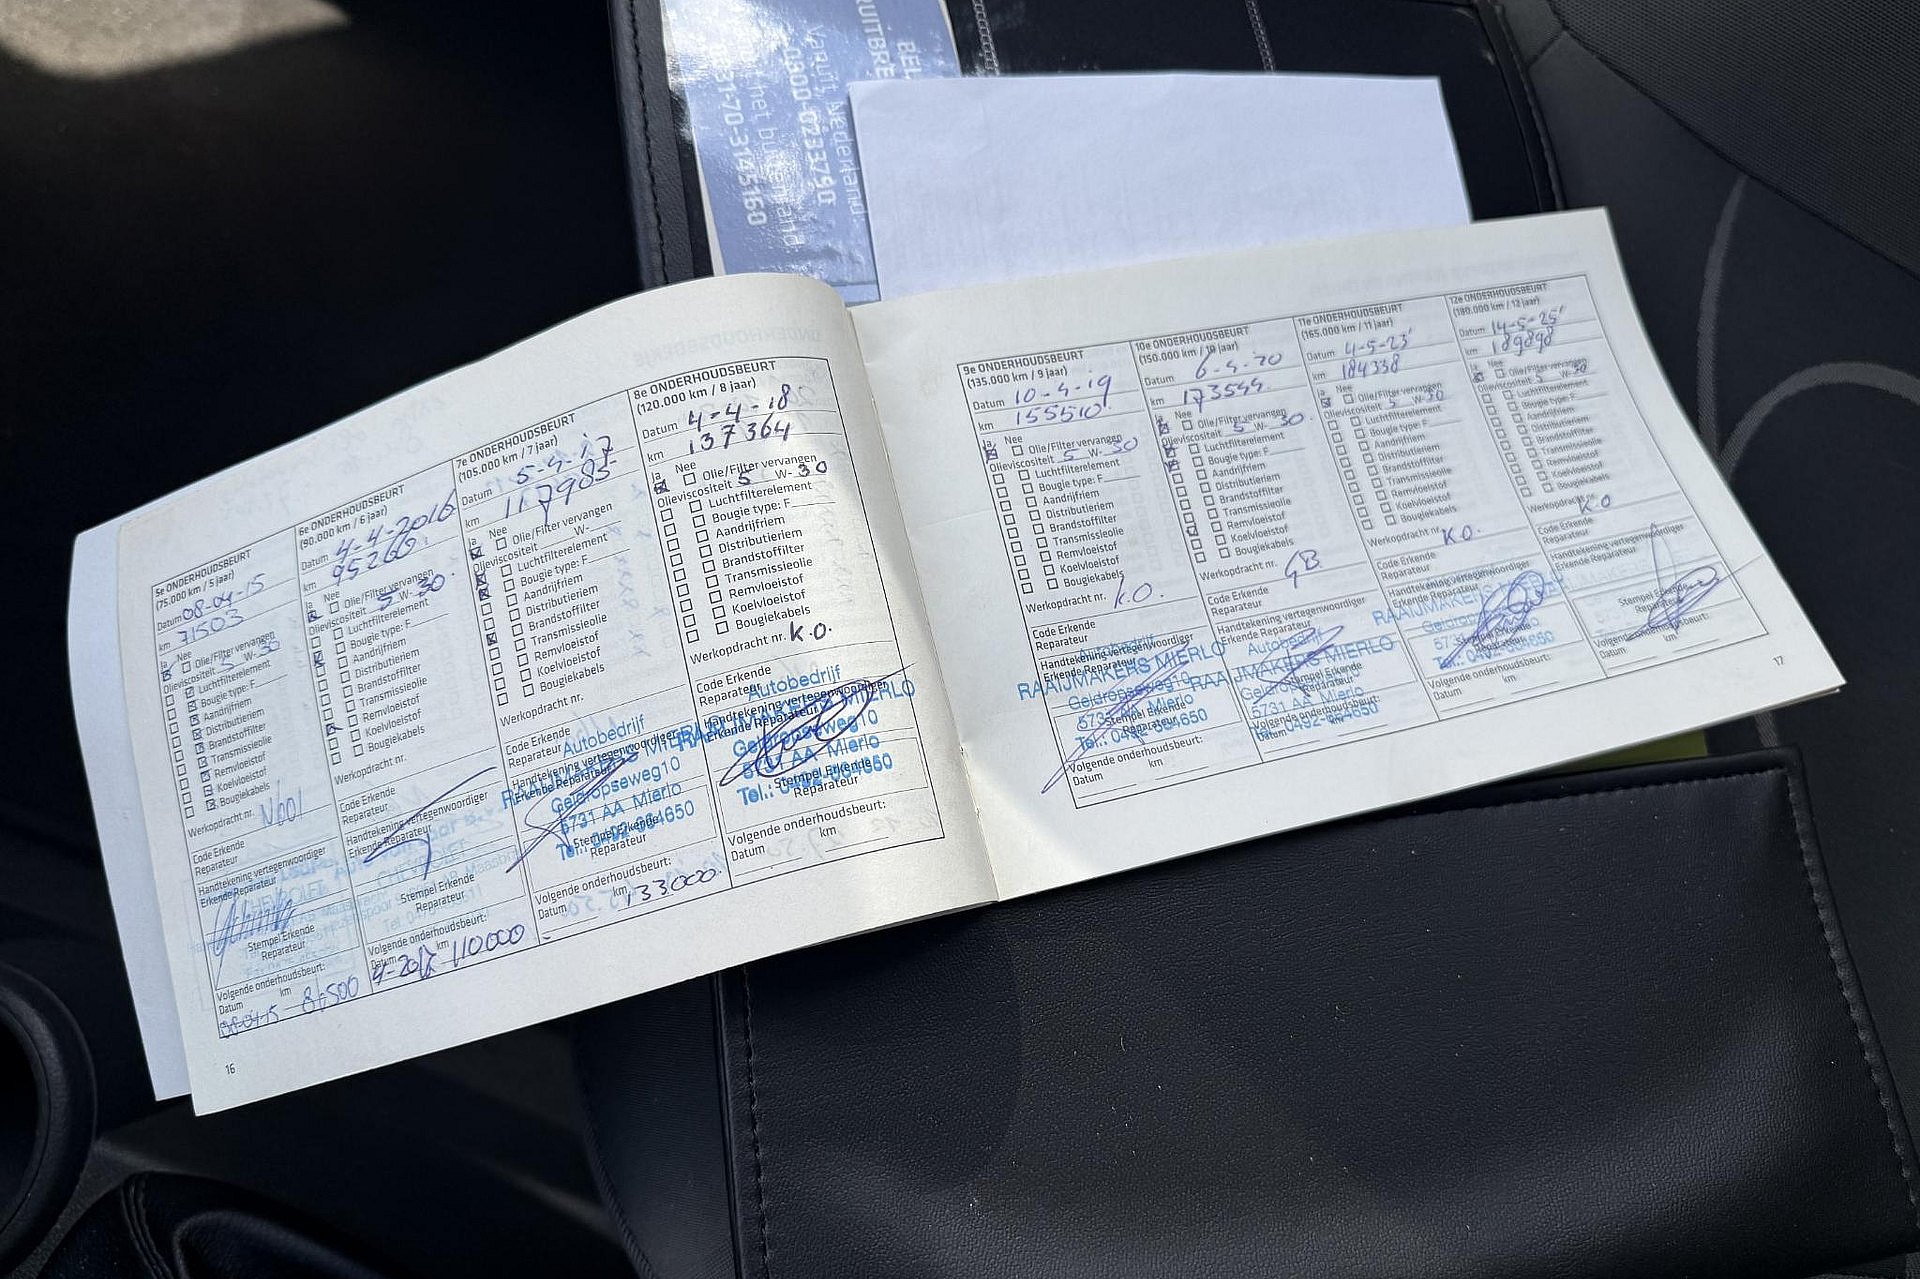 BEL
RUITBRE
Vanuit Nederland
0800-0233790
het buitenland:
0031-70-3145160
5e ONDERHOUDSBEURT
(75.000 km / 5 jaar)
Datum 08-04-15
km 71503
Ja Nee
Olie/Filter vervangen
Olieviscositeit 5 W- 30
Luchtfilterelement
Bougie type: F
Aandrijfriem
Distributieriem
Brandstoffilter
Transmissieolie
Remvloeistof
Koelvloeistof
Bougiekabels
Werkopdracht nr.
Code Erkende
Reparateur
Handtekening vertegenwoordiger
Erkende Reparateur
CHEVROLET
Stempel Erkende
Reparateur
Volgende onderhoudsbeurt:
Datum km
08-04-15 - 86500
6e ONDERHOUDSBEURT
(90.000 km / 6 jaar)
Datum 4-4-2016
km 95260
Ja Nee
Olie/Filter vervangen
Olieviscositeit 5 W- 30
Luchtfilterelement
Bougie type: F
Aandrijfriem
Distributieriem
Brandstoffilter
Transmissieolie
Remvloeistof
Koelvloeistof
Bougiekabels
Werkopdracht nr.
Code Erkende
Reparateur
Handtekening vertegenwoordiger
Erkende Reparateur
CHEVROLET
Stempel Erkende
Reparateur
Volgende onderhoudsbeurt:
Datum km
4-2017 110000
7e ONDERHOUDSBEURT
(105.000 km / 7 jaar)
Datum 5-4-17
km 117985
Ja Nee
Olie/Filter vervangen
Olieviscositeit W-
Luchtfilterelement
Bougie type: F
Aandrijfriem
Distributieriem
Brandstoffilter
Transmissieolie
Remvloeistof
Koelvloeistof
Bougiekabels
Werkopdracht nr.
Code Erkende
Reparateur
Handtekening vertegenwoordiger
Erkende Reparateur
Autobedrijf
RAAIJMAKERS MIERLO
Geldropseweg 10
5731 AA Mierlo
Tel.: 0492-664650
Stempel Erkende
Reparateur
Volgende onderhoudsbeurt:
Datum km 133.000.
8e ONDERHOUDSBEURT
(120.000 km / 8 jaar)
Datum 4-4-18
km 137364
Ja Nee
Olie/Filter vervangen
Olieviscositeit 5 W- 30
Luchtfilterelement
Bougie type: F
Aandrijfriem
Distributieriem
Brandstoffilter
Transmissieolie
Remvloeistof
Koelvloeistof
Bougiekabels
Werkopdracht nr. K.O.
Code Erkende
Reparateur
Handtekening vertegenwoordiger
Erkende Reparateur
Autobedrijf
RAAIJMAKERS MIERLO
Geldropseweg 10
5731 AA Mierlo
Tel.: 0492-664650
Stempel Erkende
Reparateur
Volgende onderhoudsbeurt:
Datum km
16
9e ONDERHOUDSBEURT
(135.000 km / 9 jaar)
Datum 10-4-19
km 155510
Ja Nee
Olie/Filter vervangen
Olieviscositeit 5 W- 30
Luchtfilterelement
Bougie type: F
Aandrijfriem
Distributieriem
Brandstoffilter
Transmissieolie
Remvloeistof
Koelvloeistof
Bougiekabels
Werkopdracht nr. K.O.
Code Erkende
Reparateur
Handtekening vertegenwoordiger
Erkende Reparateur
Autobedrijf
RAAIJMAKERS MIERLO
Geldropseweg 10
5731 AA Mierlo
Tel.: 0492-664650
Stempel Erkende
Reparateur
Volgende onderhoudsbeurt:
Datum km
10e ONDERHOUDSBEURT
(150.000 km / 10 jaar)
Datum 6-4-20
km 173544
Ja Nee
Olie/Filter vervangen
Olieviscositeit 5 W- 30
Luchtfilterelement
Bougie type: F
Aandrijfriem
Distributieriem
Brandstoffilter
Transmissieolie
Remvloeistof
Koelvloeistof
Bougiekabels
Werkopdracht nr. GB
Code Erkende
Reparateur
Handtekening vertegenwoordiger
Erkende Reparateur
Autobedrijf
RAAIJMAKERS MIERLO
Geldropseweg 10
5731 AA Mierlo
Tel.: 0492-664650
Stempel Erkende
Reparateur
Volgende onderhoudsbeurt:
Datum km
11e ONDERHOUDSBEURT
(165.000 km / 11 jaar)
Datum 4-5-23'
km 184338
Ja Nee
Olie/Filter vervangen
Olieviscositeit 5 W- 30
Luchtfilterelement
Bougie type: F
Aandrijfriem
Distributieriem
Brandstoffilter
Transmissieolie
Remvloeistof
Koelvloeistof
Bougiekabels
Werkopdracht nr. K.O.
Code Erkende
Reparateur
Handtekening vertegenwoordiger
Erkende Reparateur
RAAIJMAKERS
Stempel Erkende
Reparateur
Tel.: 0492-664650
Volgende onderhoudsbeurt:
Datum km
12e ONDERHOUDSBEURT
(180.000 km / 12 jaar)
Datum 14-5-25'
km 189898
Ja Nee
Olie/Filter vervangen
Olieviscositeit 5 W- 30
Luchtfilterelement
Bougie type: F
Aandrijfriem
Distributieriem
Brandstoffilter
Transmissieolie
Remvloeistof
Koelvloeistof
Bougiekabels
Werkopdracht nr. K.O
Code Erkende
Reparateur
Handtekening vertegenwoordiger
Erkende Reparateur
Stempel Erkende
Reparateur
Volgende onderhoudsbeurt:
Datum km
17